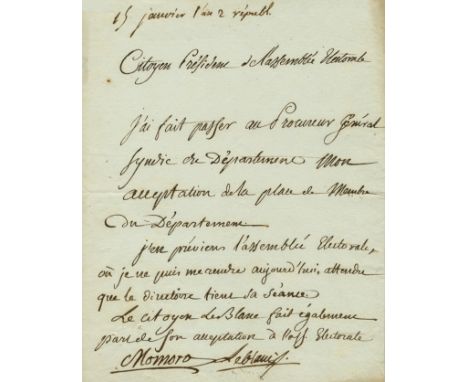 15 janvier l'an 2 républ.
Citoyen Président de l'assemblée Electorale
J'ai fait passer au Procureur Général
Syndic du Département Mon
acceptation de la place de Membre
du Département
j'en préviens l'assemblée Electorale,
où je ne puis me rendre aujourd'hui, attendu
que le directoire tient sa séance
Le citoyen Le Blanc fait également
part de son acceptation à l'ass. Electorale
Momoro Leblanc